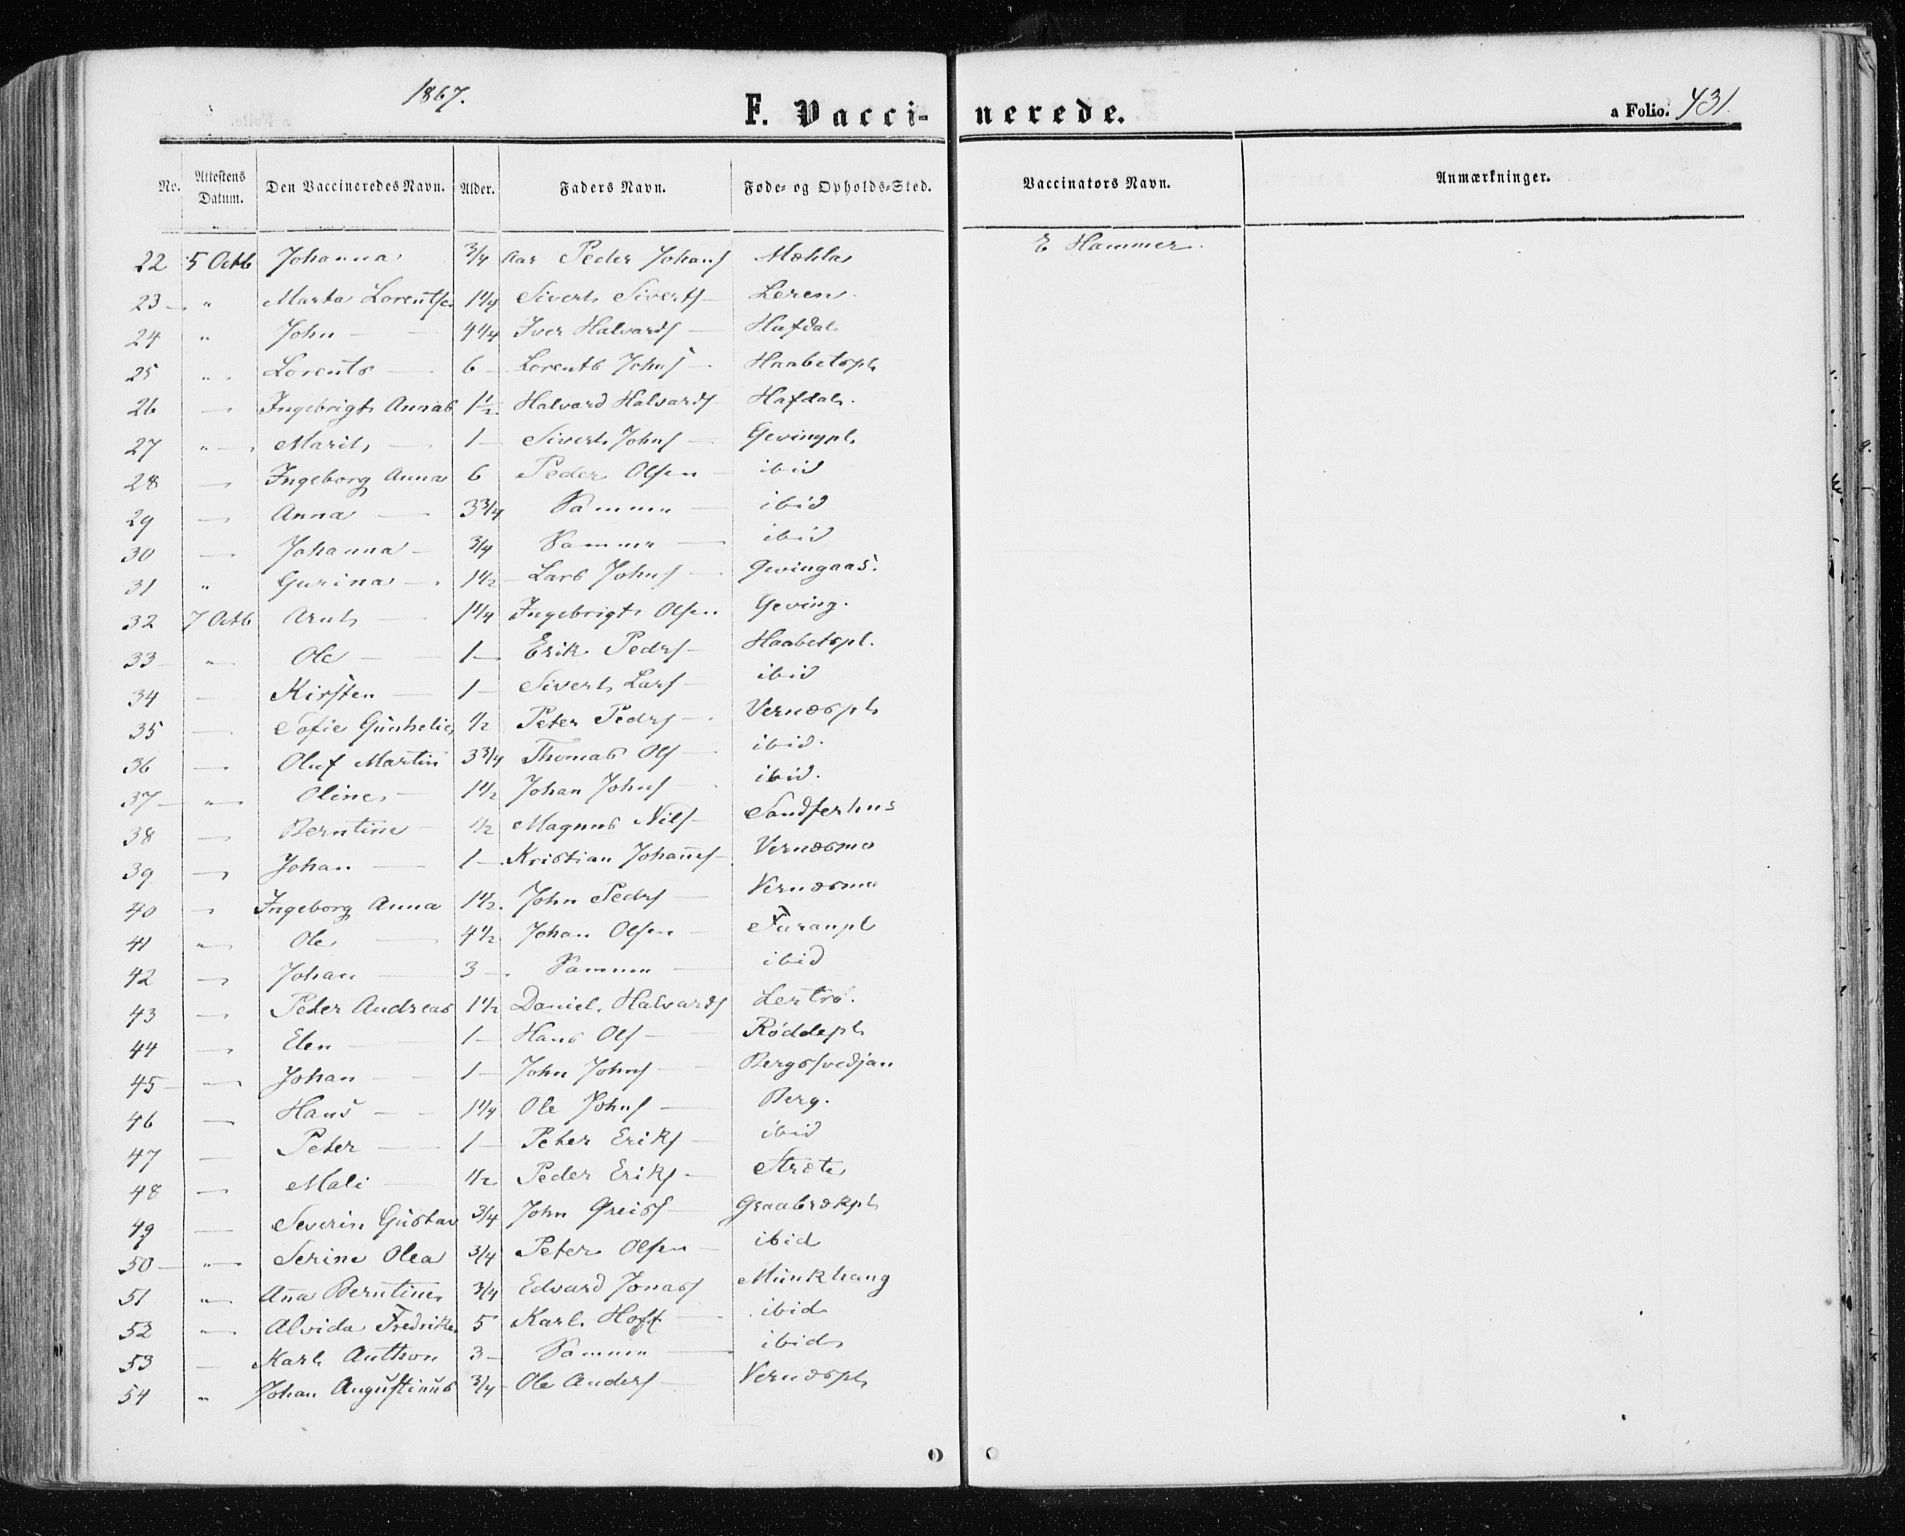 1867.
F. Vaccinerede.
a Folio. 431
No. Attestens Datum. Den Vaccineredes Navn. Alder. Faders Navn. Føde- og Opholds-Sted. Vaccinators Navn. Anmærkninger.
22 5 Octb Johanna 3/4 Aar Peder Johans Mæhla E Hammer.
23 " Marta Lorentse 1 1/4 Sivert Siverts Leren.
24 " John 4 1/4 Iver Halvards Hafdal
25 " Lorents 6 Lorents Johns Haabetspl
26 — Ingebrigt Annas 1 1/2 Halvard Halvards Hafdal.
27 " Marit 1 Sivert Johns Gevingpl
28 — Ingeborg Anna 6 Peder Olsen ibid
29 — Anna 3 3/4 Samme ibid
30 — Johanna 3/4 Samme ibid
31 " Gurina 1 1/2 Lars Johns Gevingaas.
32 7 Octb Arnt 1 1/4 Ingebrigt Olsen Geving.
33 " Ole 1 Erik Peders Haabetspl.
34 — Kirsten 1 Sivert Lars ibid
35 — Sofie Gunhelie 1/2 Peter Pedrs Vernæspl
36 — Oluf Martin 3 3/4 Thomas Ols ibid.
37 " Oline 1 1/2 Johan Johns ibid.
38 — Berntine 1/2 Magnus Nils Sandferhus
39 — Johan 1 Kristian Johans Vernæsmo
40 " Ingeborg Anna 1 1/2. John Pedrs Vernæsmo
41 " Ole 4 1/2 Johan Olsen Furanpl
42 — Johan 3 Samme ibid
43 — Peter Andreas 1 1/2 Daniel Halvards Lertrø.
44 — Elen 1 Hans Ols Røddepl
45 " Johan 1 John Johns Bergssvedjan
46 — Hans 1 1/4 Ole Johns Berg.
47 — Peter 1 Peter Eriks ibid
48 — Mali 1/2 Peder Eriks Stræte
49 — Severin Gustav 3/4 John Greiss Graabrækpl
50 " Serine Olea 3/4 Peter Olsen ibid
51 " Ana Berntine 3/4 Edvard Jonass Munkhaug
52 " Alvida Fredrikke 5 Karl Hoff ibid
53 — Karl Anthon 3 Samme ibid
54 " Johan Augustinus 3/4 Ole Anders Vernæspl